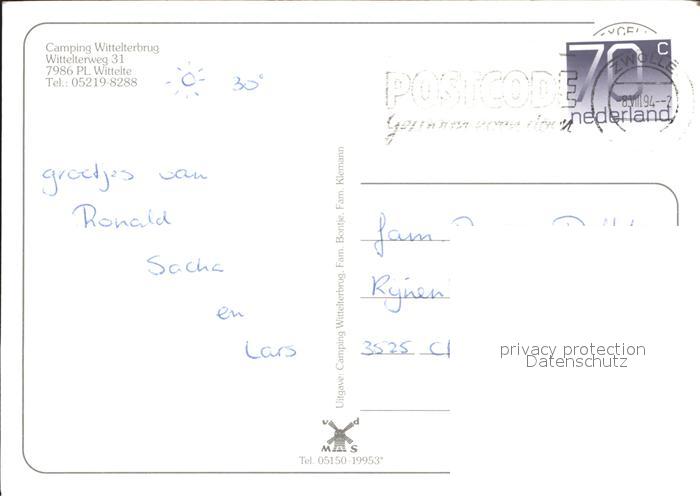 Camping Wittelterbrug
Wittelterweg 31
7986 PL Wittelte
Tel.: 05219-8288
30°
70 c
nederland
ZWOLLE
8.VIII.94
POSTCODE
groetjes van
Ronald
Sacha
en
Lars
Uitgave: Camping Wittelterbrug, Fam. Bontje, Fam. Klemann
fam.
Rijnen
3525
privacy protection
Datenschutz
v d
M S
Tel. 05150-19953*